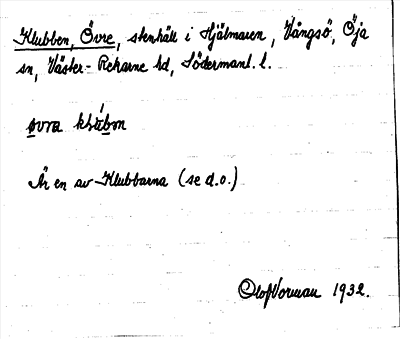 Klubben, Övre, stenhäll i Hjälmaren, Vångsö, Öja
sn, Väster-Rekarne hd, Södermanl. l.
øvra klúbən
Är en av Klubbarna (se d.o.)
Olof Vorman 1932.